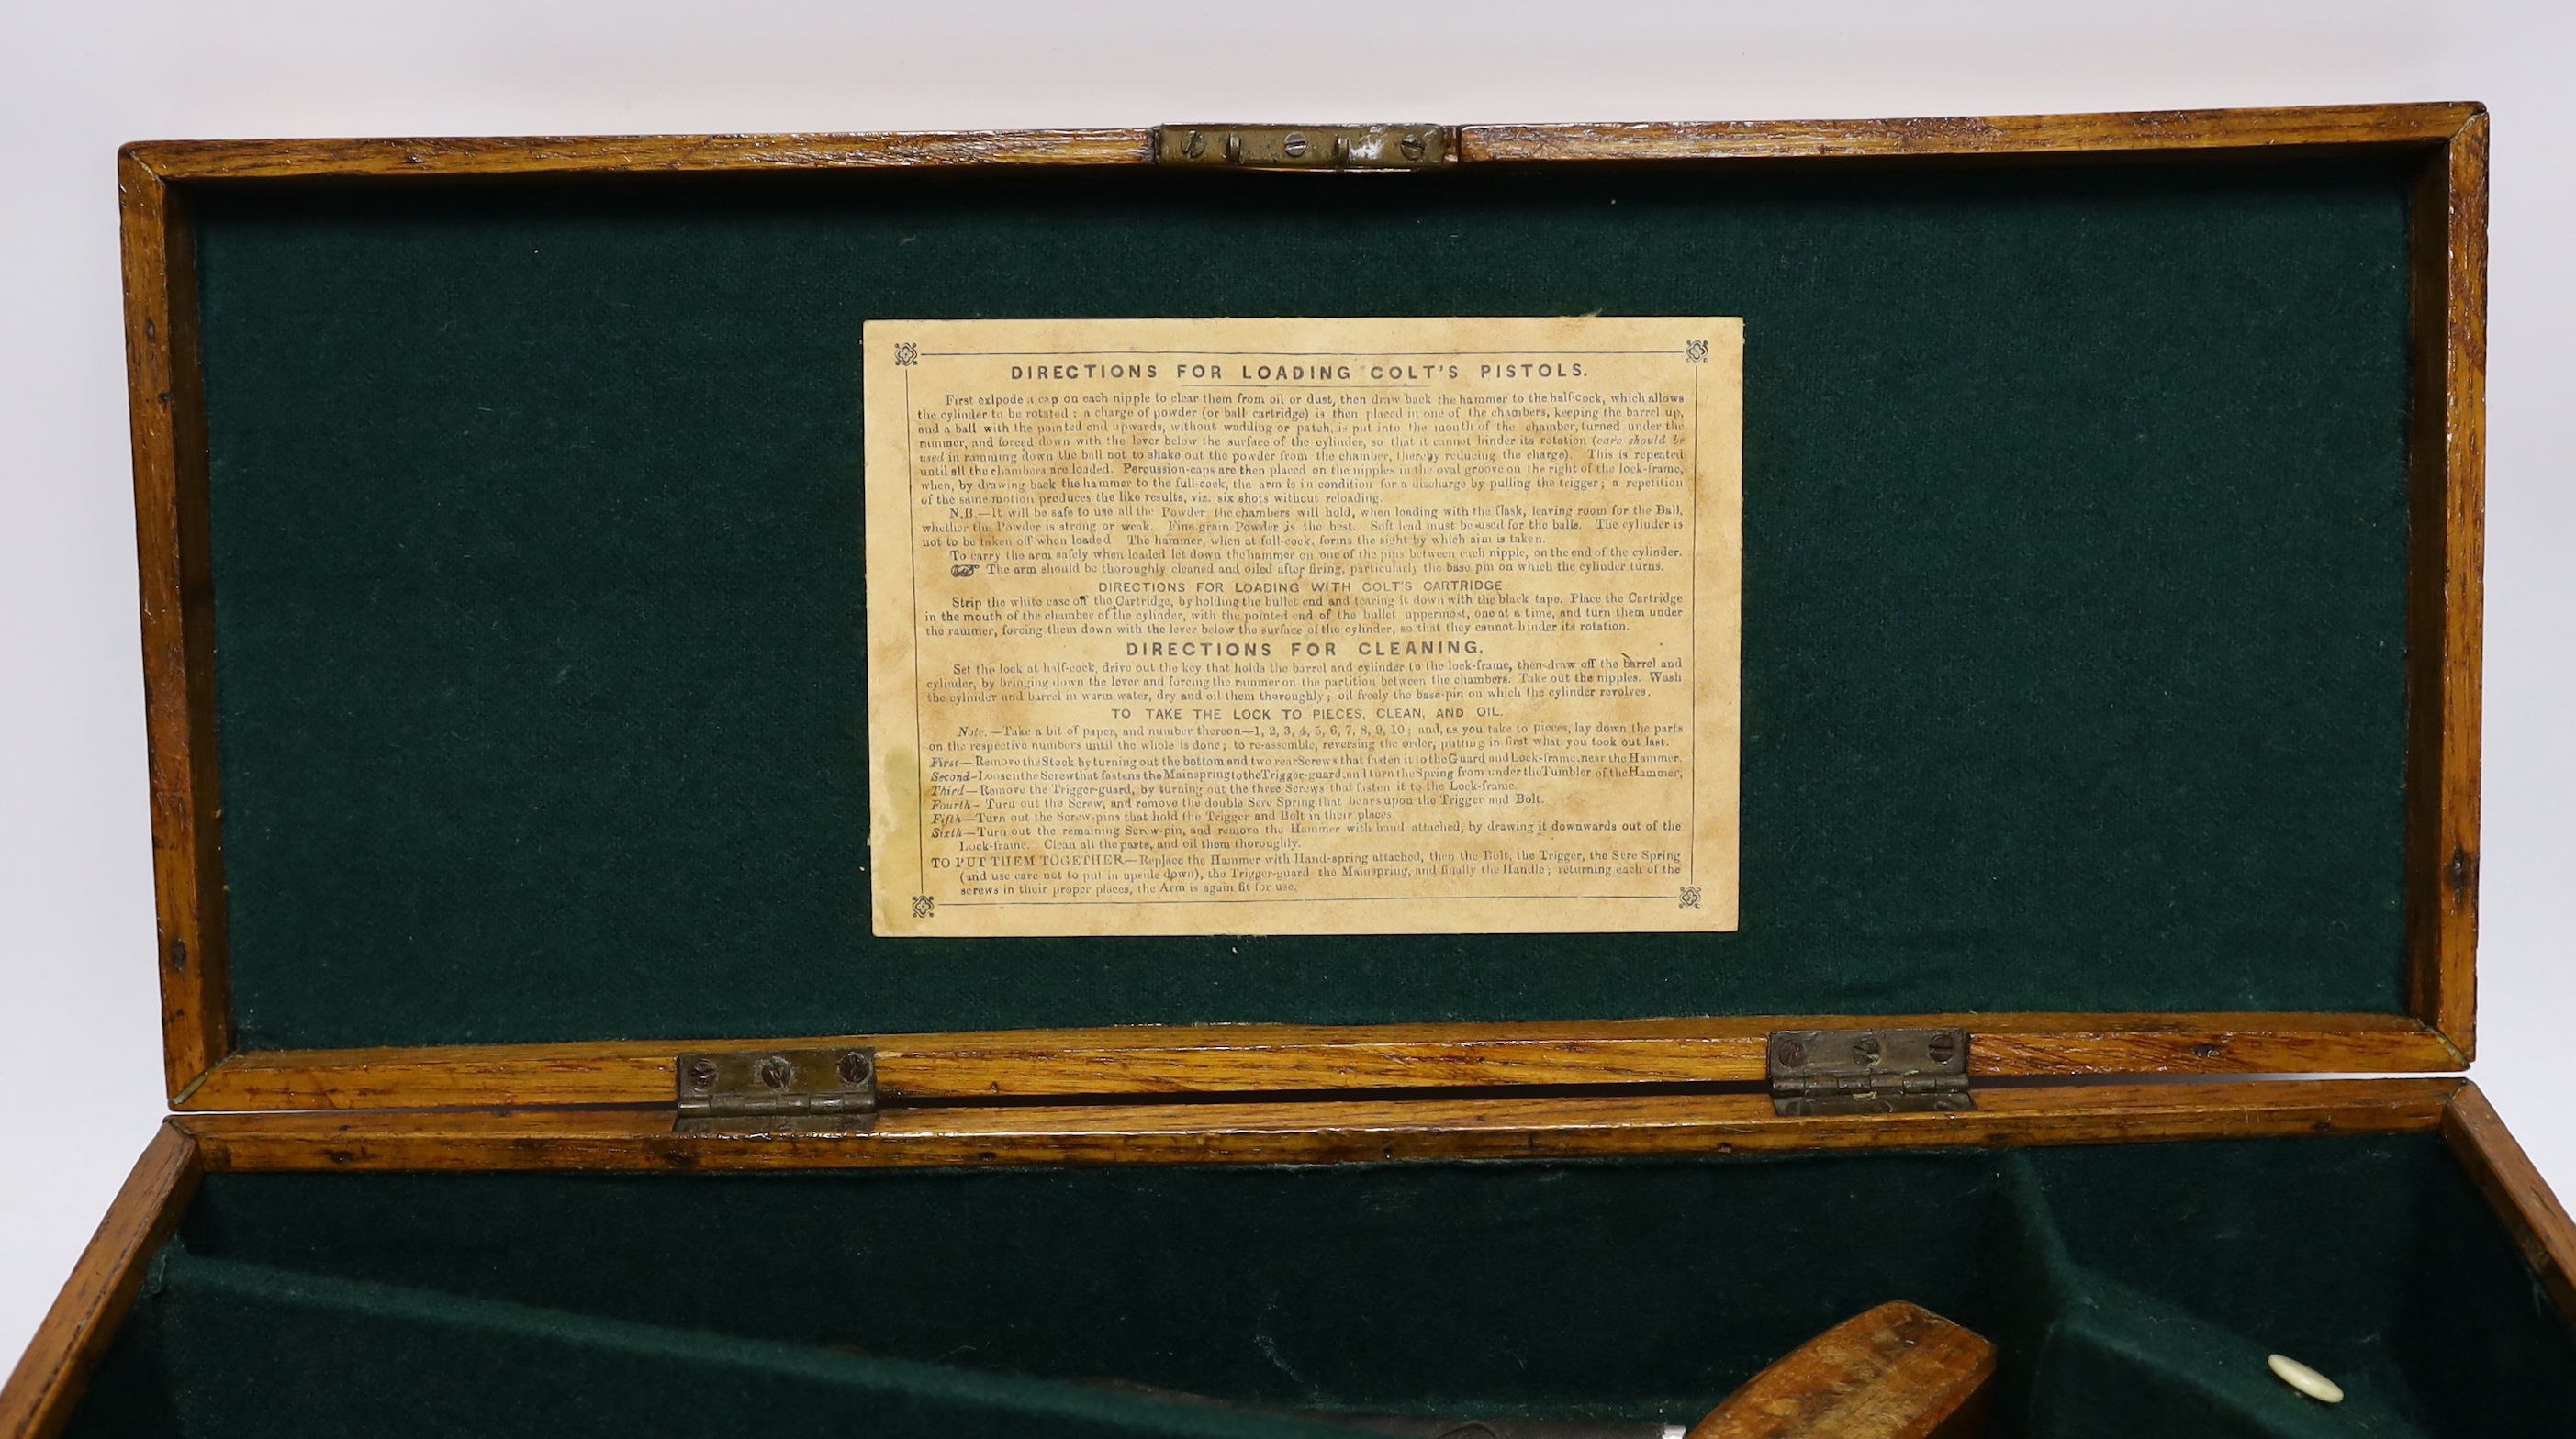 DIRECTIONS FOR LOADING COLT'S PISTOLS.
First exlpode a cap on each nipple to clear them from oil or dust, then draw back the hammer to the half-cock, which allows
the cylinder to be rotated; a charge of powder (or ball cartridge) is then placed in one of the chambers, keeping the barrel up,
and a ball with the pointed end upwards, without wadding or patch, is put into the mouth of the chamber, turned under the
rammer, and forced down with the lever below the surface of the cylinder, so that it cannot hinder its rotation (care should be
used in ramming down the ball not to shake out the powder from the chamber, thereby reducing the charge). This is repeated
until all the chambers are loaded. Percussion-caps are then placed on the nipples in the oval groove on the right of the lock-frame,
when, by drawing back the hammer to the full-cock, the arm is in condition for a discharge by pulling the trigger; a repetition
of the same motion produces the like results, viz. six shots without reloading.
N.B.—It will be safe to use all the Powder the chambers will hold, when loading with the flask, leaving room for the Ball,
whether the Powder is strong or weak. Fine grain Powder is the best. Soft lead must be used for the balls. The cylinder is
not to be taken off when loaded The hammer, when at full-cock, forms the sight by which aim is taken.
To carry the arm safely when loaded let down the hammer on one of the pins between each nipple, on the end of the cylinder.
☞ The arm should be thoroughly cleaned and oiled after firing, particularly the base pin on which the cylinder turns.
DIRECTIONS FOR LOADING WITH COLT'S CARTRIDGE
Strip the white case off the Cartridge, by holding the bullet end and tearing it down with the black tape. Place the Cartridge
in the mouth of the chamber of the cylinder, with the pointed end of the bullet uppermost, one at a time, and turn them under
the rammer, forcing them down with the lever below the surface of the cylinder, so that they cannot hinder its rotation.
DIRECTIONS FOR CLEANING.
Set the lock at half-cock, drive out the key that holds the barrel and cylinder to the lock-frame, then draw off the barrel and
cylinder, by bringing down the lever and forcing the rammer on the partition between the chambers. Take out the nipples. Wash
the cylinder and barrel in warm water, dry and oil them thoroughly; oil freely the base-pin on which the cylinder revolves.
TO TAKE THE LOCK TO PIECES, CLEAN, AND OIL.
Note.—Take a bit of paper, and number thereon—1, 2, 3, 4, 5, 6, 7, 8, 9, 10; and, as you take to pieces, lay down the parts
on the respective numbers until the whole is done; to re-assemble, reversing the order, putting in first what you took out last.
First—Remove the Stock by turning out the bottom and two rear Screws that fasten it to the Guard and Lock-frame, near the Hammer.
Second—Loosen the Screw that fastens the Mainspring to the Trigger-guard, and turn the Spring from under the Tumbler of the Hammer,
Third—Remove the Trigger-guard, by turning out the three Screws that fasten it to the Lock-frame.
Fourth—Turn out the Screw, and remove the double Sere Spring that bears upon the Trigger and Bolt.
Fifth—Turn out the Screw-pins that hold the Trigger and Bolt in their places.
Sixth—Turn out the remaining Screw-pin, and remove the Hammer with hand attached, by drawing it downwards out of the
Lock-frame. Clean all the parts, and oil them thoroughly.
TO PUT THEM TOGETHER—Replace the Hammer with Hand-spring attached, then the Bolt, the Trigger, the Sere Spring
(and use care not to put in upside down), the Trigger-guard the Mainspring, and finally the Handle; returning each of the
screws in their proper places, the Arm is again fit for use.